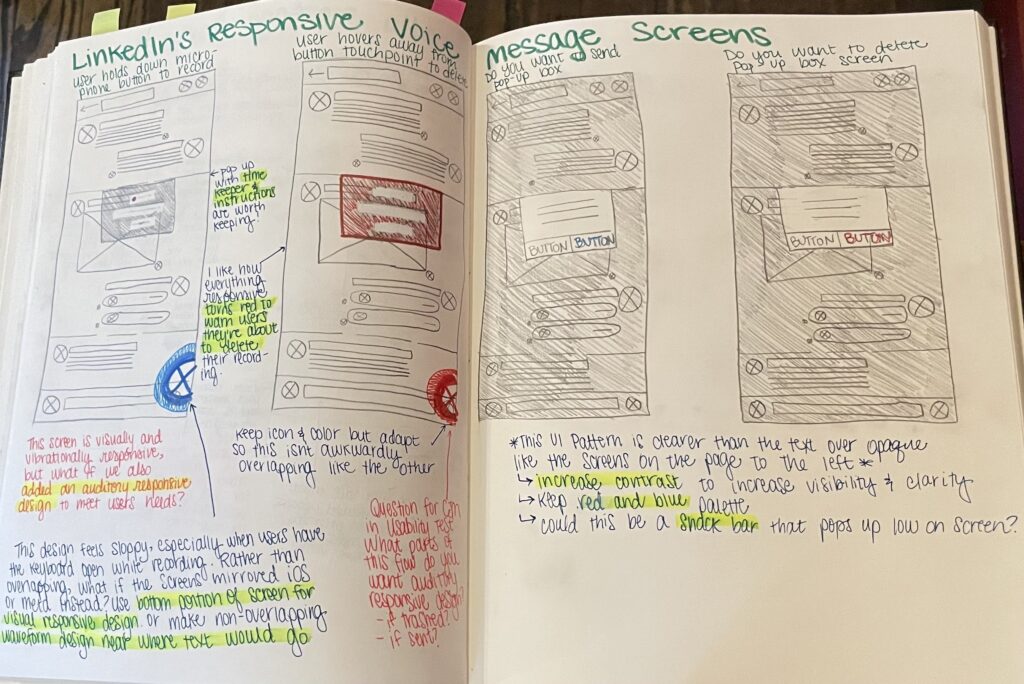 LinkedIn's Responsive Voice Message Screens
User holds down micro-
phone button to record
User hovers away from
button touchpoint to delete
Do you want to send
pop-up box
Do you want to delete
pop up box screen
←pop up
with time
keeper &
instructions
are worth
keeping?
I like how
everything
responsive
turns red to
warn users
they're about
to delete
their record-
ing.
BUTTON BUTTON
BUTTON BUTTON
This screen is visually and
vibrationally responsive,
but what if we also
added an auditory responsive
design to meet users needs?
Keep icon & color but adapt
so this isn't awkwardly
overlapping like the other
This design feels sloppy, especially when users have
the keyboard open while recording. Rather than
overlapping, what if the screens mirrored iOS
or meta instead? Use bottom portion of screen for
visual responsive design or make non-overlapping
waveform design near where text would go
Question for
in Usability Test
What parts of
this flow do you
want auditory
responsive design?
- if trashed?
- if sent?
*This UI Pattern is clearer than the text over opaque
like the screens on the page to the left*
↳ increase contrast to increase visibility & clarity
↳ Keep red and blue palette
↳ could this be a snack bar that pops up low on screen?